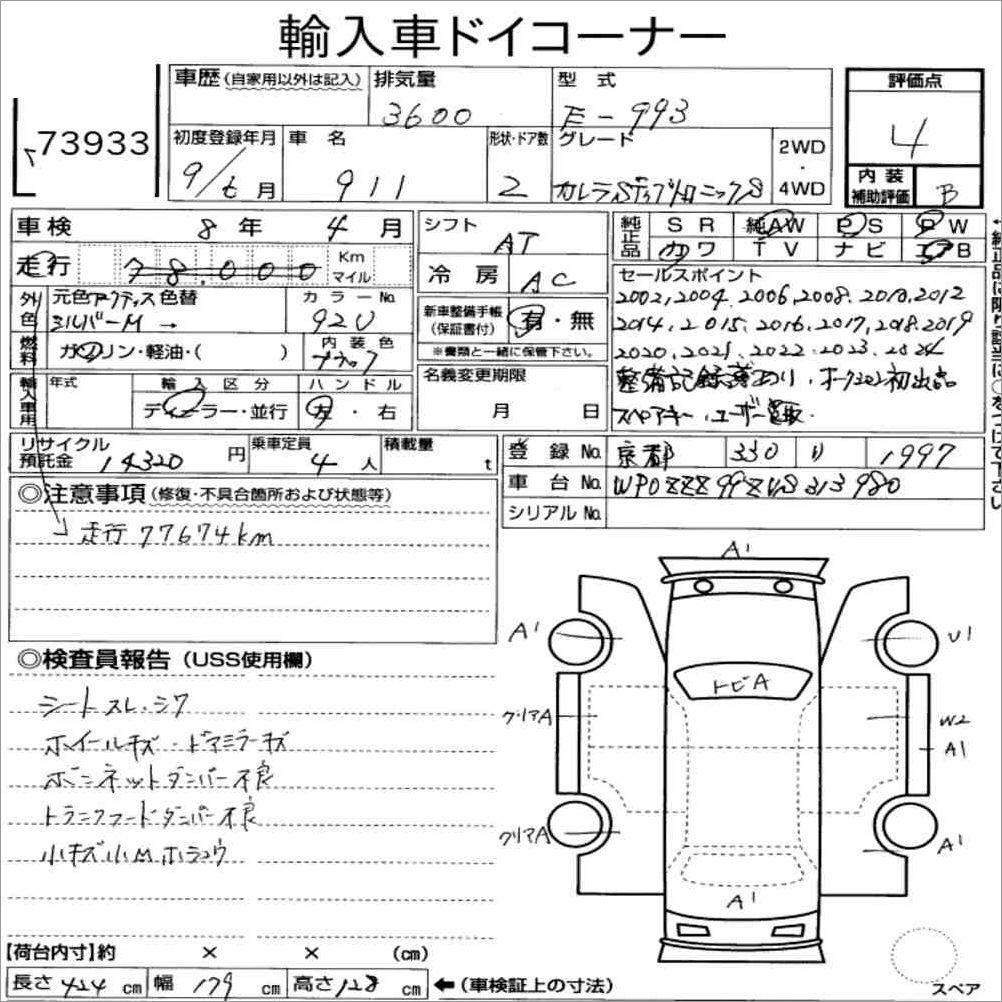 輸入車ドイコーナー
73933
車歴 (自家用以外は記入) 排気量 型式
3600 E-993
初度登録年月 車名 形状・ドア数 グレード 2WD・4WD
9/ 月 911 2
評価点
4
内装補助評価 B
車検 8年 4月
走行 78,000 Km マイル
シフト AT
冷房 AC
純正品 SR 純AW PS PW
カワ TV ナビ エアB
外色 元色 色替 カラーNo.
シルバーM → 92U
燃料 ガソリン・軽油・( ) 内装色
ブラック
新車整備手帳(保証書付) 有・無
※書類と一緒に保管下さい。
セールスポイント
2002,2004,2006,2008,2010,2012
2014,2015,2016,2017,2018,2019
2020,2021,2022,2023,2024
整備記録簿あり、 初出品
スペアキー、ユーザー買取.
輸入車用 年式 輸入区分 ハンドル
ディーラー・並行 左・右
名義変更期限
月 日
リサイクル預託金 14320円 乗車定員 4人 積載量 t
登録No. 京都 330 り 1997
車台No. WP0ZZZ99ZVS313980
シリアルNo.
◎注意事項(修復・不具合箇所および状態等)
走行 77674km
◎検査員報告(USS使用欄)
シートスレ・シワ
ホイールキズ・ドアミラーキズ
ボンネットダンパー不良
トランクフードダンパー不良
小キズ小M
A1
A1 U1
トビA
クリアA W2
A1
クリアA A1
A1
【荷台内寸】約 × × (cm)
長さ 424 cm 幅 179 cm 高さ 128 cm ←(車検証上の寸法)
スペア